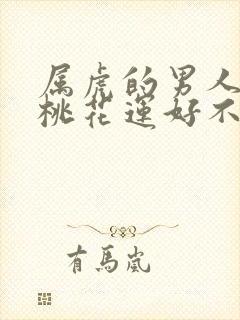 属虎的男人
桃花运好不
有馬嵐